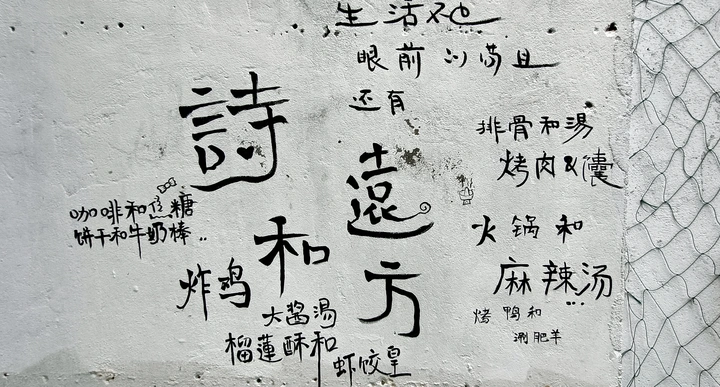 生活不止
眼前的苟且
还有
詩
和
遠
方
排骨和湯
烤肉&囊
火锅和
麻辣汤
烤鸭和
涮肥羊
咖啡和糖
饼干和牛奶棒..
炸鸡
大酱湯
榴蓮酥和
虾饺皇